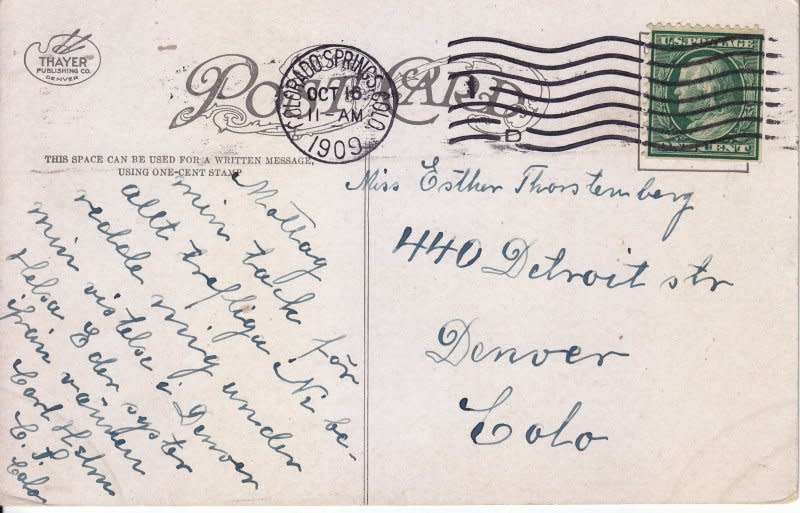 THAYER
PUBLISHING CO.
DENVER
POST CARD
COLORADO SPRINGS, COLO.
OCT 16
11-AM
1909
1
D
U.S. POSTAGE
ONE CENT
THIS SPACE CAN BE USED FOR A WRITTEN MESSAGE,
USING ONE-CENT STAMP
Mottag
min tack för
allt trefliga Ni be-
redde mig under
min vistelse i Denver
Helsa Eder syster
från vännen
Carl
C. S.
Colo
Miss Esther Thorstemberg
440 Detroit str
Denver
Colo